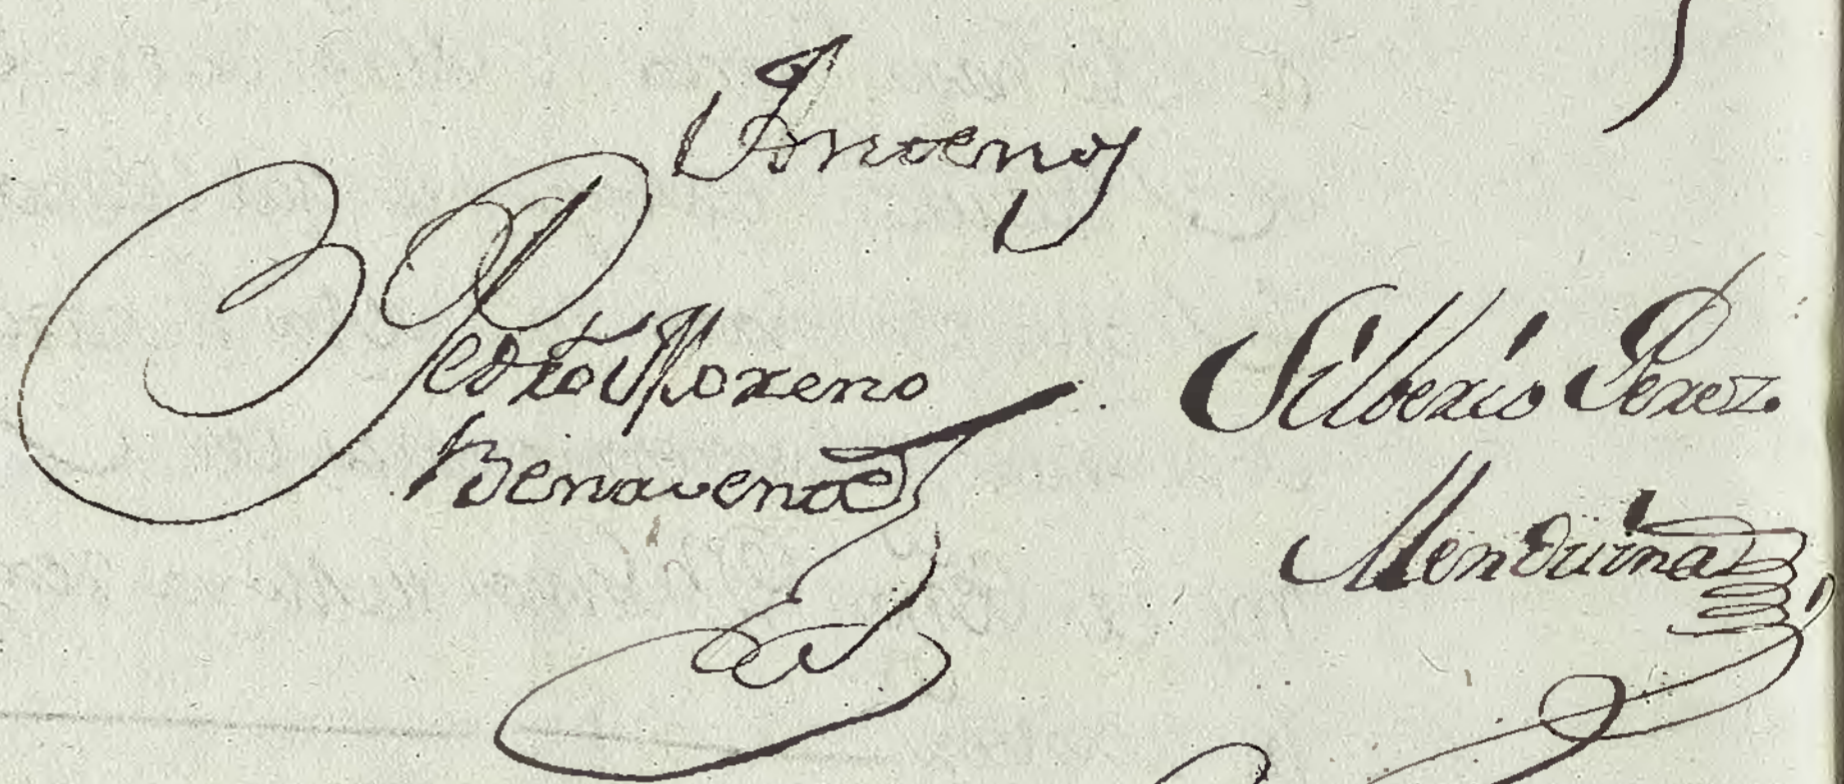 Antemy
Pedro Moreno
Benavente
Silberio Perez
Menduina